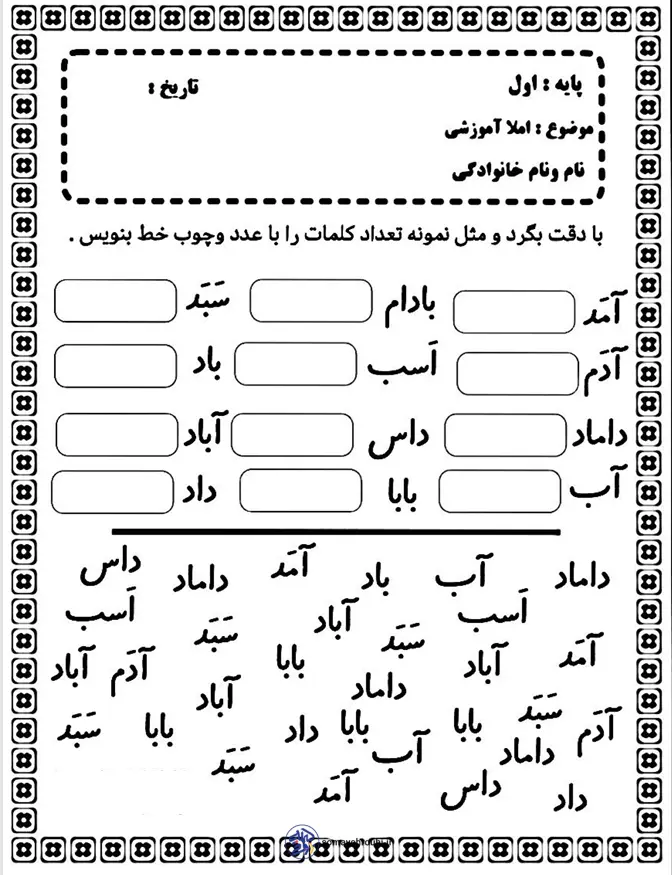 پایه : اول تاریخ :
موضوع : املا آموزشی
نام ونام خانوادگی
با دقت بگرد و مثل نمونه تعداد کلمات را با عدد وچوب خط بنویس .
آمَد بادام سَبَد
آدَم اَسب باد
داماد داس آباد
آب بابا داد
داماد آب باد آمَد داماد داس
اَسب آباد سَبَد اَسب
آمَد آباد سَبَد بابا آدَم آباد
داماد آباد
آدَم سَبَد بابا بابا داد بابا سَبَد
داماد آب سَبَد
داد داس آمَد